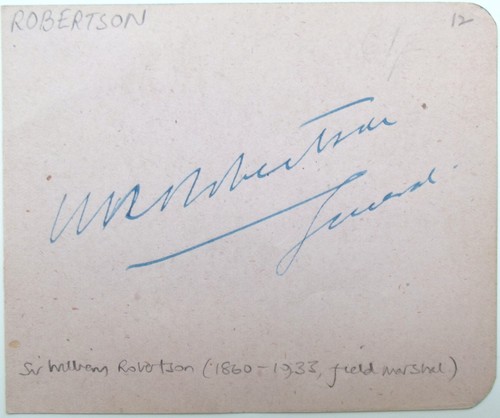 ROBERTSON
12
WRRobertson
General.
Sir William Robertson (1860-1933, field marshal)